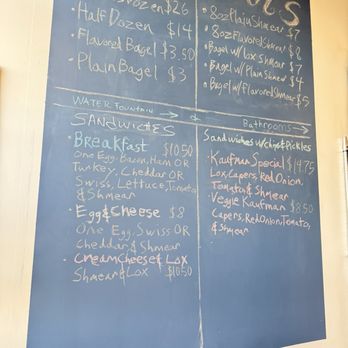 Dozen $26
• Half Dozen $14
• Flavored Bagel $3.50
• Plain Bagel $3
• 8oz Plain Shmear $7
• 8oz Flavored Shmear $8
• Bagel w/ lox Shmear $7
• Bagel w/ Plain Shmear $4
• Bagel w/ Flavored Shmear $5
WATER FOUNTAIN → & Bathrooms →
SANDWICHES
• Breakfast $10.50
One Egg, Bacon, Ham OR
Turkey, Cheddar OR
Swiss, Lettuce, Tomato
& Shmear
• Egg & Cheese $8
One Egg, Swiss OR
Cheddar & Shmear
• Cream Cheese & Lox
Shmear & Lox $10.50
Sandwiches w/ chips & Pickles
• Kaufman Special $14.75
Lox, Capers, Red Onion,
Tomato & Shmear
• Veggie Kaufman $8.50
Capers, Red Onion, Tomato,
& Shmear